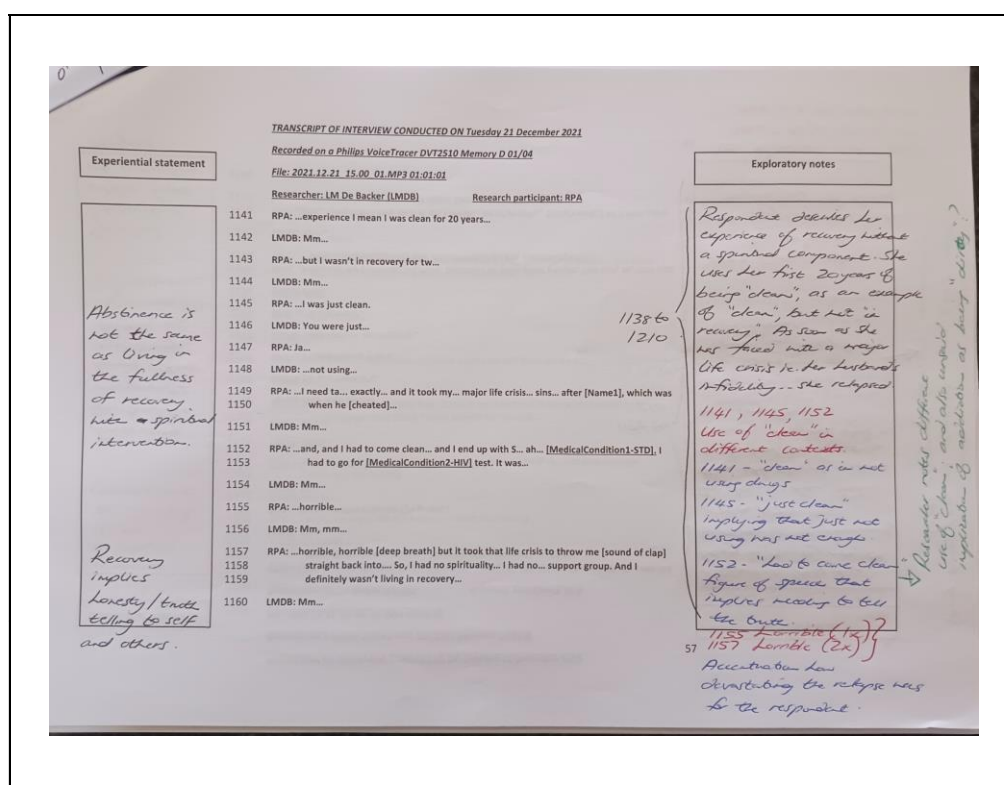 TRANSCRIPT OF INTERVIEW CONDUCTED ON Tuesday 21 December 2021
Recorded on a Philips VoiceTracer DVT2510 Memory D 01/04
File: 2021.12.21_15.00_01.MP3 01:01:01
Researcher: LM De Backer (LMDB) Research participant: RPA
Experiential statement
Abstinence is
not the same
as living in
the fullness
of recovery
spiritual
intervention.
Recovery
implies
honesty/truth
telling to self
and others.
1141 RPA: ...experience I mean I was clean for 20 years...
1142 LMDB: Mm...
1143 RPA: ...but I wasn't in recovery for tw...
1144 LMDB: Mm...
1145 RPA: ...I was just clean.
1146 LMDB: You were just...
1147 RPA: Ja...
1148 LMDB: ...not using...
1149 RPA: ...I need ta... exactly... and it took my... major life crisis... sins... after [Name1], which was
1150 when he [cheated]...
1151 LMDB: Mm...
1152 RPA: ...and, and I had to come clean... and I end up with S... ah... [MedicalCondition1-STD], I
1153 had to go for [MedicalCondition2-HIV] test. It was...
1154 LMDB: Mm...
1155 RPA: ...horrible...
1156 LMDB: Mm, mm...
1157 RPA: ...horrible, horrible [deep breath] but it took that life crisis to throw me [sound of clap]
1158 straight back into.... So, I had no spirituality... I had no... support group. And I
1159 definitely wasn't living in recovery...
1160 LMDB: Mm...
57
1138 to
1210
Exploratory notes
Respondent describes her
experience of recovery without
a spiritual component. She
uses her first 20 years of
being "clean", as an example
of "clean", but not "in
recovery". As soon as she
was faced with a major
life crisis ie her husband's
infidelity.. she relapsed
1141, 1145, 1152
Use of "clean" in
different contexts.
1141 - "clean" as in not
using drugs
1145 - "just clean"
implying that just not
using was not enough
1152 - "had to come clean
figure of speech that
implies needing to tell
the truth.
1155 Horrible (1x)
1157 Horrible (2x)
Accentuation how
devastating the relapse was
for the respondent.
Researcher notes different
use of "clean", and also unsaid
implication of addiction as being "dirty"?